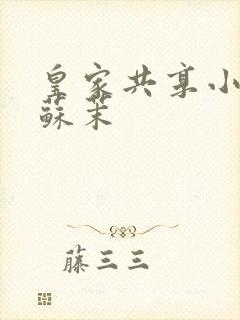 皇家共享小
蘇茉
藤三三